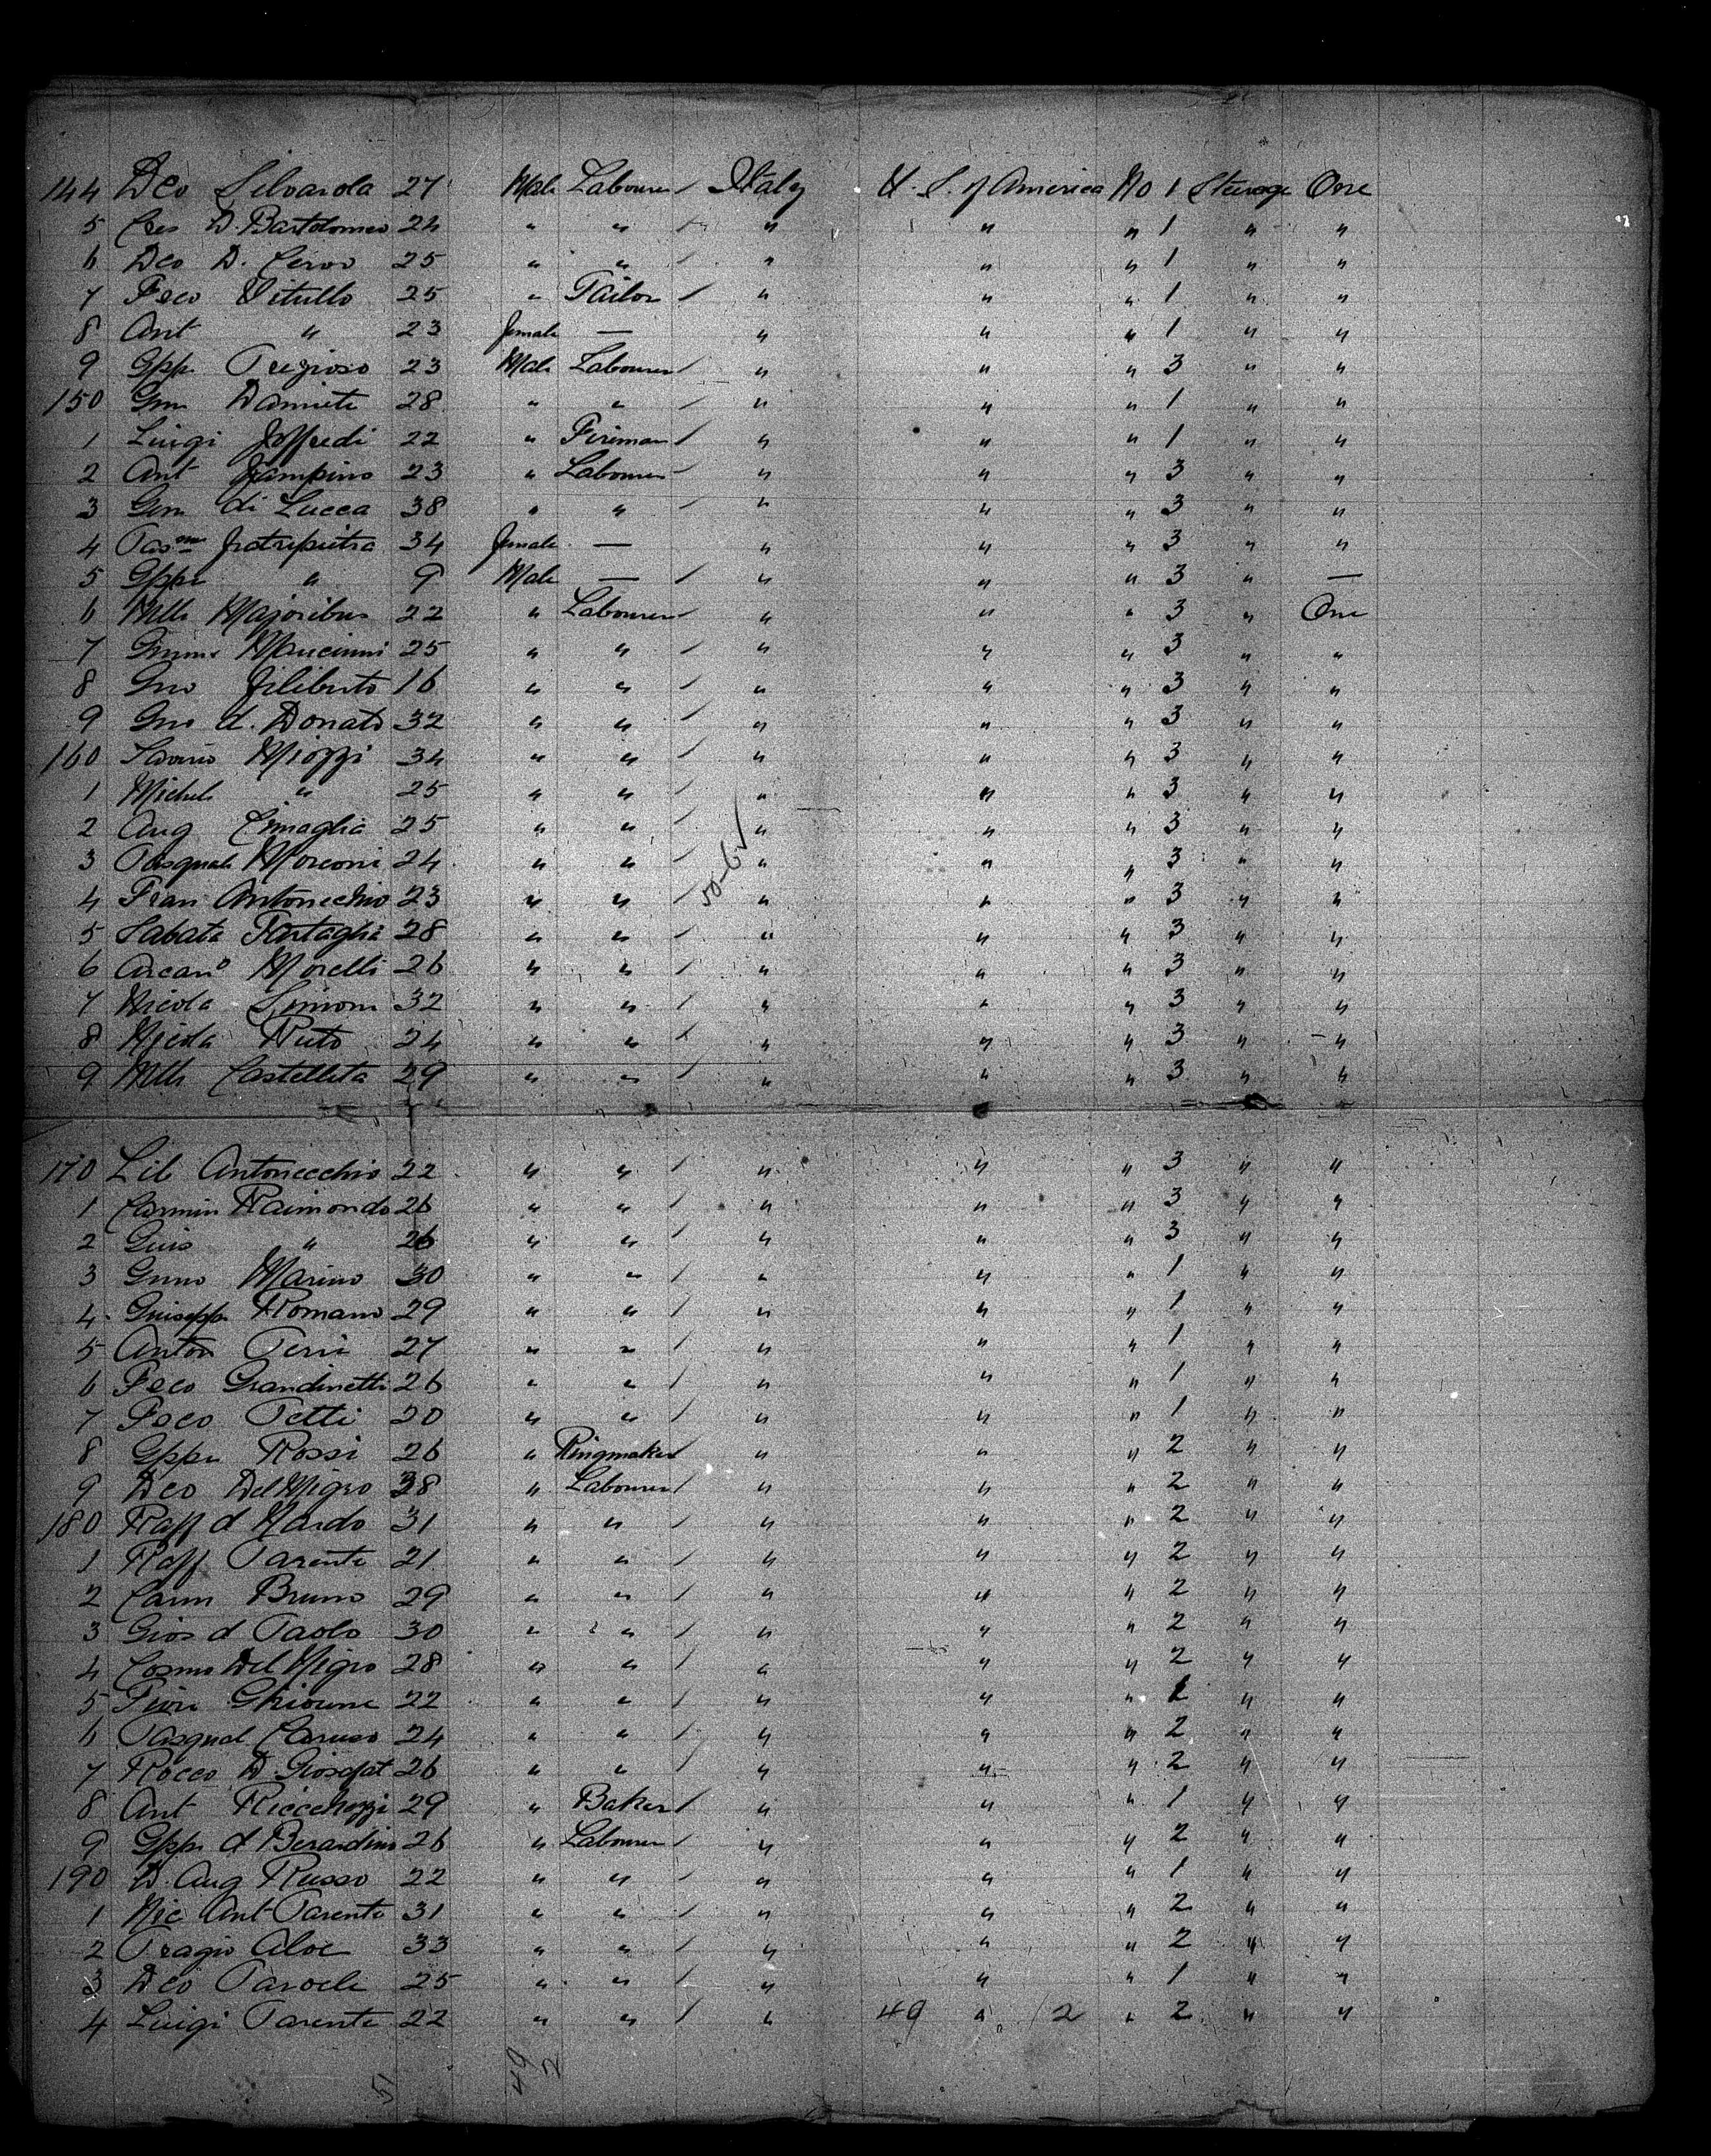 144 Dco Silvarola 27 Male Labourer / Italy U. S. of America No 1 Steerage One
5 Ces D. Bartolomeo 24 " " / " " " 1 " "
6 Dco D. Cervo 25 " " / " " " 1 " "
7 Fsco Vitullo 25 " Tailor / " " " 1 " "
8 Ant " 23 female — " " " 1 " "
9 Gppe 23 Male Labourer / " " " 3 " "
150 28 " " / " " " 1 " "
1 Luigi Joffredi 22 " Fireman / " " " 1 " "
2 Ant Jampino 23 " Labourer " " " 3 " "
3 di Lucca 38 " " / " " " 3 " "
4 34 female — " " " 3 " "
5 Gppe " 9 Male — / " " " 3 " —
6 Mlle Majoribus 22 " Labourer / " " " 3 " One
7 25 " " / " " " 3 " "
8 Gno Filiberto 16 " " / " " " 3 " "
9 Gno d. Donato 32 " " / " " " 3 " "
160 Miozzi 34 " " / " " " 3 " "
1 Michele " 25 " " / " " " 3 " "
2 Aug Cimaglia 25 " " / " " " 3 " "
3 Pasquale Morconi 24 " " / " " " 3 " "
4 Fran Antonecchio 23 " " / " " " 3 " "
5 Sabata Tartaglia 28 " " / " " " 3 " "
6 Arcano Morelli 26 " " / " " " 3 " "
7 Nicola Simoni 32 " " / " " " 3 " "
8 Nicola Ruto 24 " " / " " " 3 " "
9 Mlle Castelleta 29 " " / " " " 3 " "
170 Lib Antonecchio 22 " " / " " " 3 " "
1 Carmin Raimondo 26 " " / " " " 3 " "
2 Guis " 26 " " / " " " 3 " "
3 Gnno Marino 30 " " / " " " 1 " "
4 Guiseppe Romano 29 " " / " " " 1 " "
5 Anton Perri 27 " " / " " " 1 " "
6 Fsco Grandinetti 26 " " / " " " 1 " "
7 Fsco Petti 20 " " / " " " 1 " "
8 Gppe Rossi 26 " Ringmaker / " " " 2 " "
9 Dco Del Nigro 38 " Labourer / " " " 2 " "
180 Raff d Nardo 31 " " / " " " 2 " "
1 Raff Parente 21 " " / " " " 2 " "
2 Carm Bruno 29 " " / " " " 2 " "
3 Gios d Paolo 30 " " / " " " 2 " "
4 Cosmo Del Nigro 28 " " / " " " 2 " "
5 22 " " / " " " " "
6 Pasqual Caruso 24 " " / " " " 2 " "
7 Rocco D. Giosafat 26 " " / " " " 2 " "
8 Ant Ricchezzi 29 " Baker / " " " 1 " "
9 Gppe d Berardino 26 " Labourer / " " " 2 " "
190 D. Aug Russo 22 " " / " " " 1 " "
1 Nic Ant Parente 31 " " / " " " 2 " "
2 Aloe 33 " " / " " " 2 " "
3 Dco Paroli 25 " " / " " " 1 " "
4 Luigi Parente 22 " " / " 49 " 2 " 2 " "
49
2